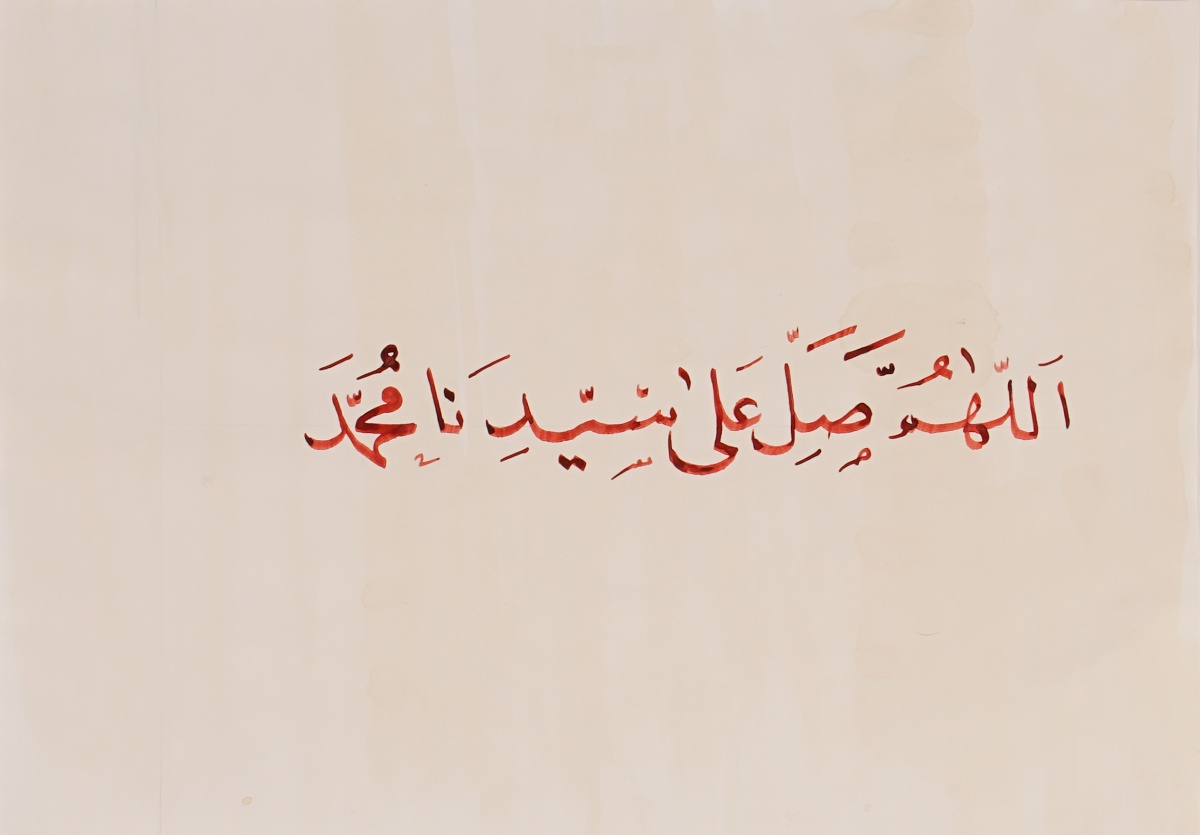 اَللّٰهُمَّ صَلِّ عَلٰى سَيِّدِنَا مُحَمَّد